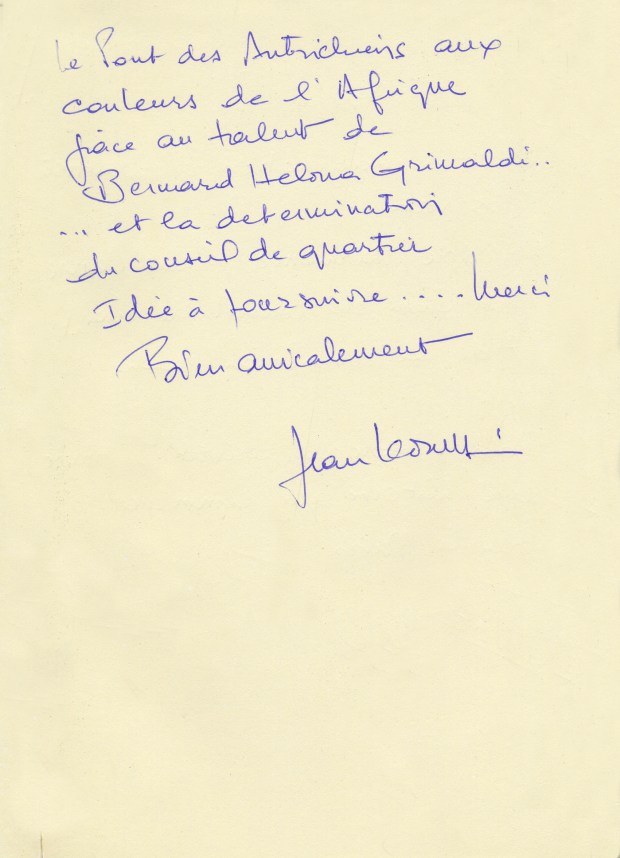 Le Pont des Autrichiens aux
couleurs de l'Afrique
grâce au talent de
Bernard Helona Grimaldi..
... et la determination
du conseil de quartier
Idée à poursuivre ..... Merci
Bien amicalement
Jean